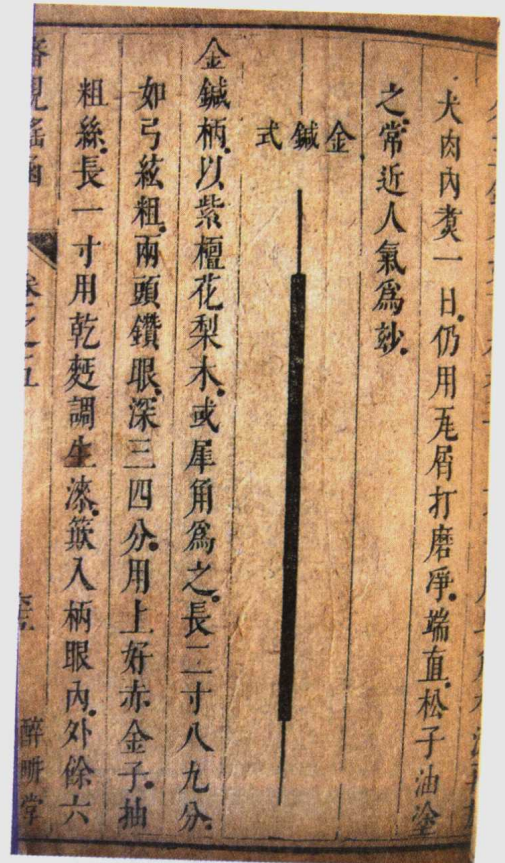 犬肉內煑一日.仍用瓦屑打磨淨.端直.松子油塗
之.常近人氣爲妙.
金鍼式
金鍼柄.以紫檀花梨木.或犀角爲之.長二寸八九分.
如弓絃粗.兩頭鑽眼.深三四分.用上好赤金子.抽
粗絲.長一寸用乾麪調生漆.簌入柄眼內.外餘六
審視瑤函
卷之五
醉畊堂